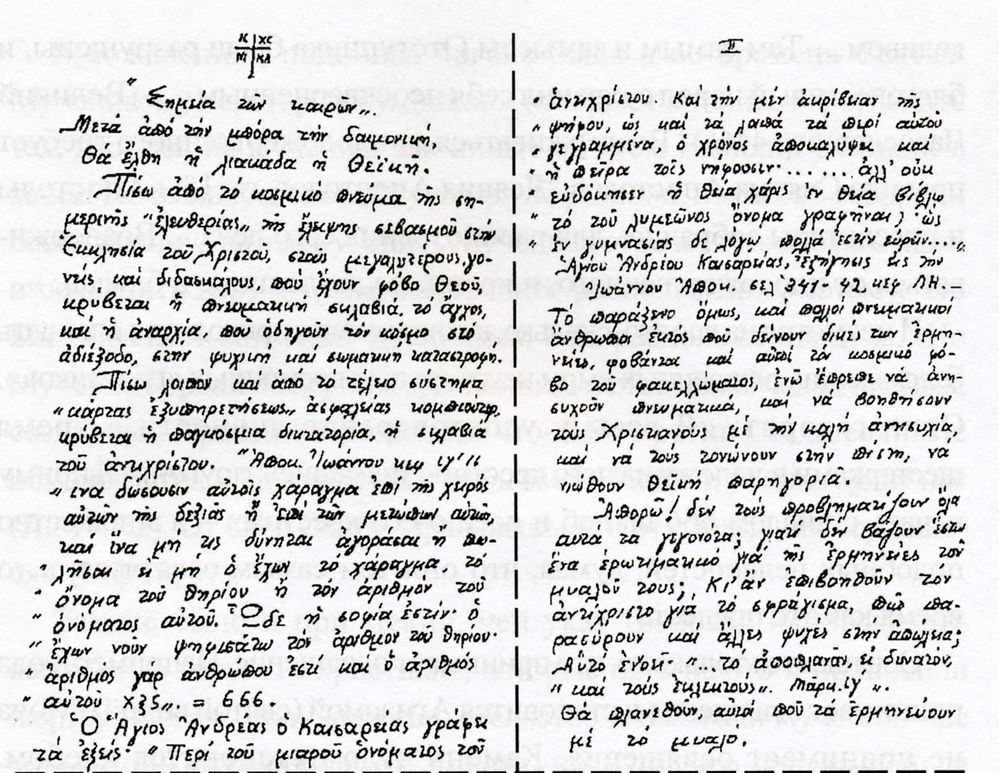 Κ ΧΣ
Π ΚΛ
"Σημεῖα τῶν καιρῶν".
Μετά ἀπό τήν μπόρα τήν δαιμονική,
Θά ἔλθη ἡ λιακάδα ἡ Θεϊκή.
Πίσω ἀπό τό κοσμικό πνεῦμα τῆς ση-
μερινῆς "ἐλευθερίας", τῆς ἔλλειψης σεβασμοῦ στήν
Ἐκκλησία τοῦ Χριστοῦ, στούς μεγαλυτέρους, γο-
νεῖς καί διδασκάλους πού ἔχουν φόβο Θεοῦ,
κρύβεται ἡ πνευματική σκλαβιά, τό ἄγχος,
καί ἡ ἀναρχία πού ὁδηγοῦν τόν κόσμο στό
ἀδιέξοδο, στήν ψυχική καί σωματική καταστροφή.
Πίσω λοιπόν καί ἀπό τό τέλειο σύστημα
"κάρτας ἐξυπηρετήσεως" ἀσφαλείας κομπιοῦτερ,
κρύβεται ἡ παγκόσμια δικτατορία, ἡ σκλαβιά
τοῦ ἀντιχρίστου. Ἀποκ. Ἰωάννου κεφ. ιγ' 16
"ἵνα δώσουσιν αὐτοῖς χάραγμα ἐπί τῆς χειρός
αὐτῶν τῆς δεξιᾶς ἤ ἐπί τῶν μετώπων αὐτῶν,
"καί ἵνα μή τις δύνηται ἀγοράσαι ἤ πω-
"λῆσαι εἰ μή ὁ ἔχων τό χάραγμα, τό
"ὄνομα τοῦ θηρίου ἤ τόν ἀριθμόν τοῦ
"ὀνόματος αὐτοῦ. Ὧδε ἡ σοφία ἐστίν· ὁ
"ἔχων νοῦν ψηφισάτω τόν ἀριθμόν τοῦ θηρίου·
"ἀριθμός γάρ ἀνθρώπου ἐστί· καί ὁ ἀριθμός
"αὐτοῦ χξς". = 666.
Ὁ Ἅγιος Ἀνδρέας ὁ Καισαρείας γράφει
τά ἑξῆς: "Περί τοῦ μιαροῦ ὀνόματος τοῦ
II
"ἀντιχρίστου. Καί τήν μέν ἀκρίβειαν τῆς
"ψήφου, ὡς καί τά λοιπά τά περί αὐτοῦ
"γεγραμμένα, ὁ χρόνος ἀποκαλύψει καί
"ἡ πεῖρα τοῖς νήφουσιν..... ἀλλ' οὐκ
"εὐδόκησεν ἡ θεία χάρις ἐν θείᾳ βίβλῳ
"τό τοῦ λυμεῶνος ὄνομα γραφῆναι, ὡς
"ἐν γυμνασίας δέ λόγῳ πολλά ἐστιν εὑρεῖν....".
Ἁγίου Ἀνδρέου Καισαρείας, Ἐξήγησις εἰς τήν
Ἰωάννου Ἀποκ. σελ. 341-42. κεφ. ΛΗ.
Τό παράξενο ὅμως, καί πολλοί πνευματικοί
ἄνθρωποι ἐκτός πού δίνουν δικές των ἑρμη-
νεῖες, φοβοῦνται καί αὐτοί τόν κοσμικό φό-
βο τοῦ φακελλώματος, ἐνῶ ἔπρεπε νά ἀνη-
συχοῦν πνευματικά, καί νά βοηθήσουν
τούς Χριστιανούς μέ τήν καλή ἀνησυχία,
καί νά τούς τονώνουν στήν πίστη, νά
νιώθουν Θεϊκή παρηγοριά.
Ἀπορῶ! δέν τούς προβληματίζουν ὅλα
αὐτά τά γεγονότα; γιατί δέν βάζουν ἔστω
ἕνα ἐρωτηματικό γιά τίς ἑρμηνεῖες τοῦ
μυαλοῦ τους; Κι' ἄν ἐπιβοηθοῦν τόν
ἀντίχριστο γιά τό σφράγισμα, πῶς πα-
ρασύρουν καί ἄλλες ψυχές στήν ἀπώλεια;
Αὐτό ἐννοεῖ· "...τό ἀποπλανᾶν, εἰ δυνατόν,
"καί τούς ἐκλεκτούς". Μάρκ. ιγ'.
Θά πλανηθοῦν, αὐτοί πού τά ἑρμηνεύουν
μέ τό μυαλό.